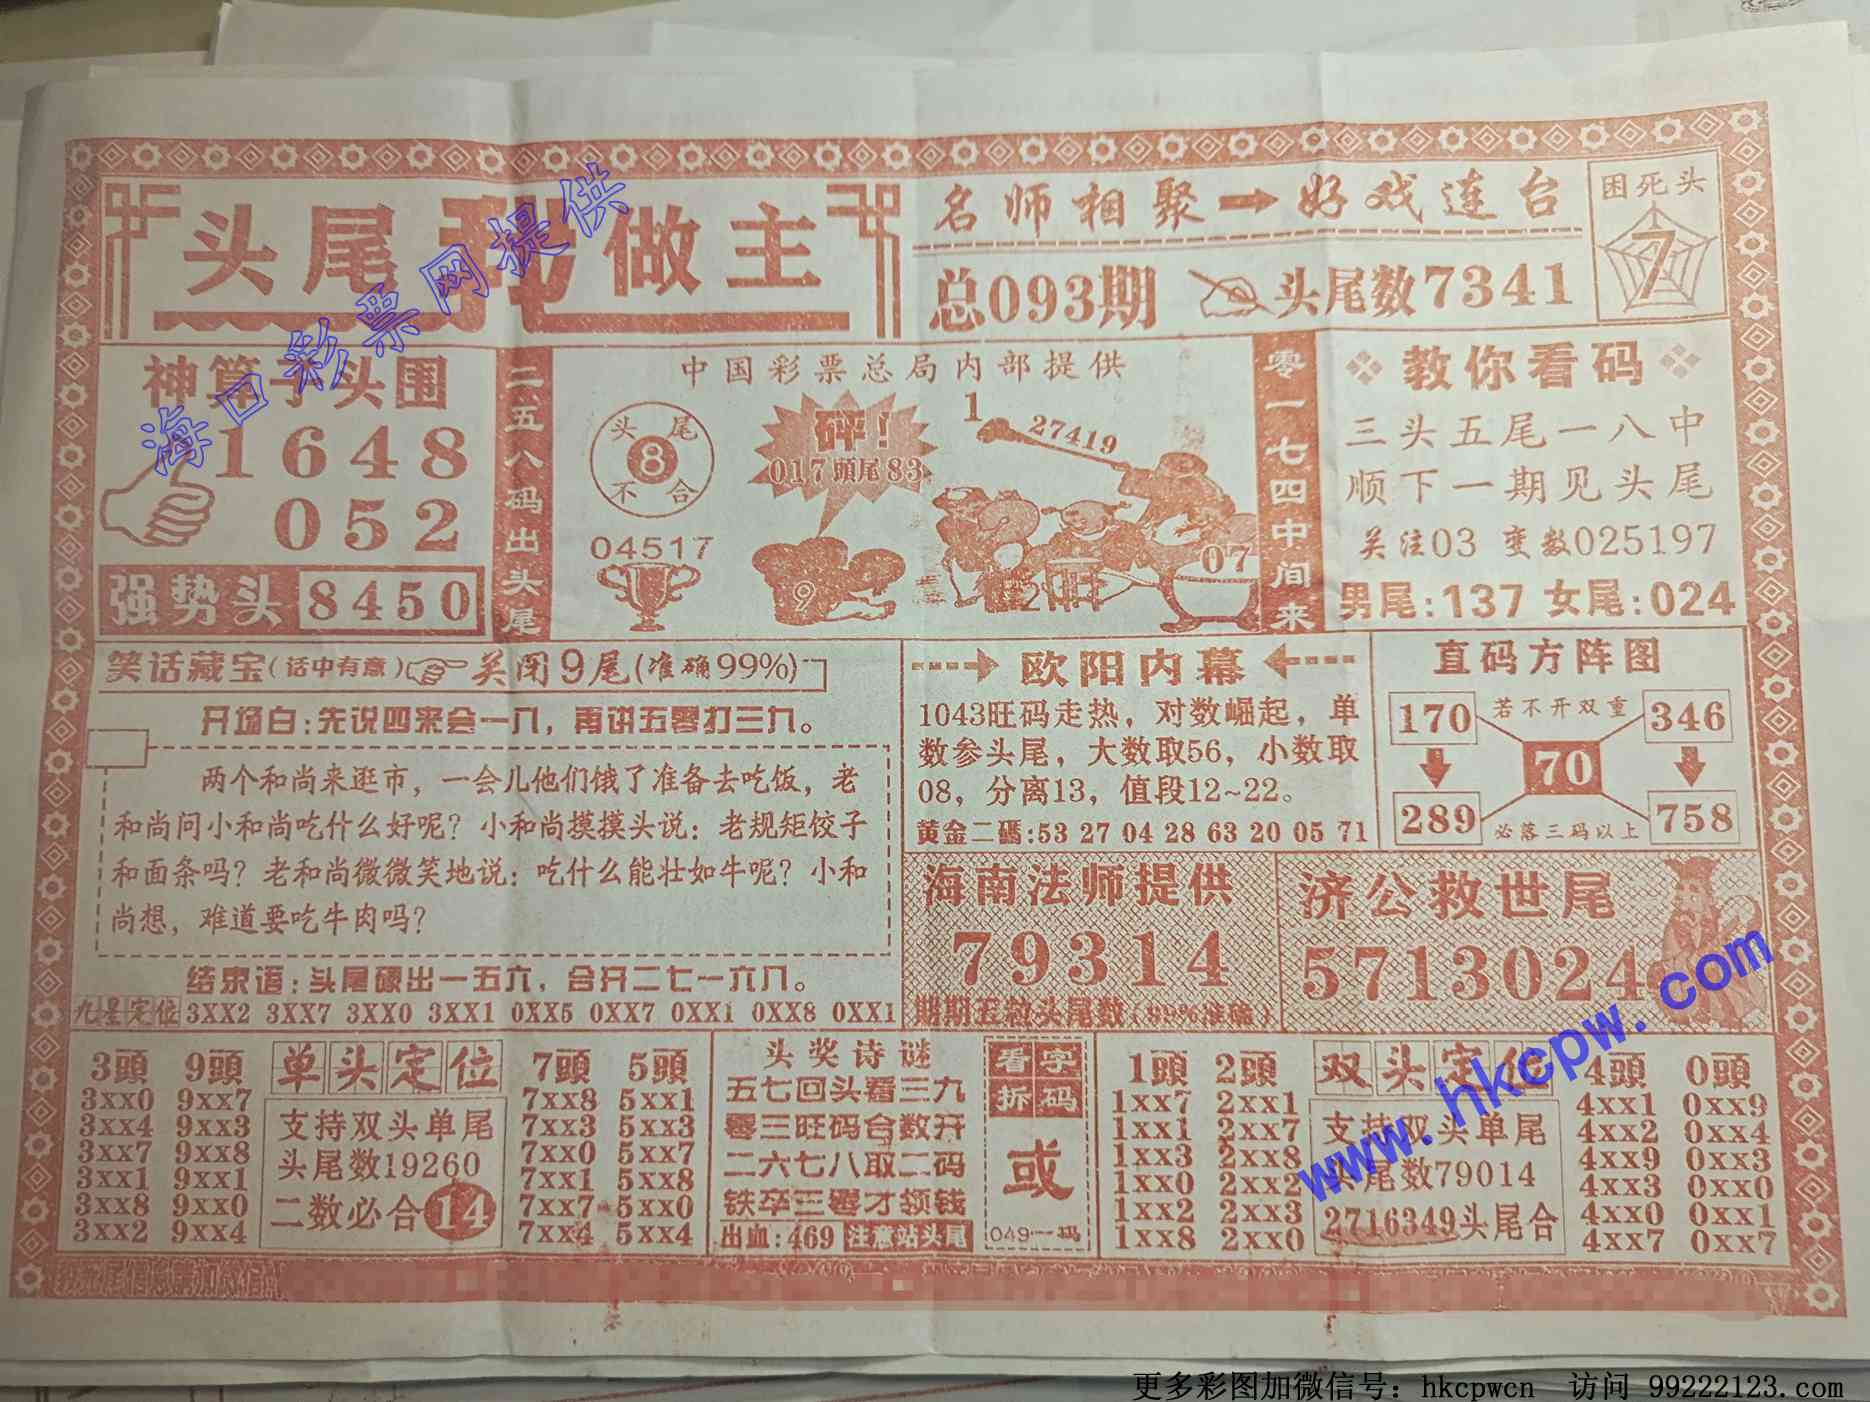 头尾我做主
名师相聚→好戏连台
总093期 头尾数7341
困死头
7
海口彩票网提供
神算子头围
1648
052
强势头 8450
二五八码出头尾
中国彩票总局内部提供
头尾
8
不合
04517
砰!
017頭尾83
9
1
27419
07
零一七四中间来
教你看码
三头五尾一八中
顺下一期见头尾
关注03 变数025197
男尾:137 女尾:024
笑话藏宝(话中有意) 关闭9尾(准确99%)
开场白:先说四来会一八,再讲五零打三九。
两个和尚来逛市,一会儿他们饿了准备去吃饭,老
和尚问小和尚吃什么好呢?小和尚摸摸头说:老规矩饺子
和面条吗?老和尚微微笑地说:吃什么能壮如牛呢?小和
尚想,难道要吃牛肉吗?
结束语:头尾硬出一五六,合开二七一六八。
九星定位 3XX2 3XX7 3XX0 3XX1 0XX5 0XX7 0XX1 0XX8 0XX1
欧阳内幕
1043旺码走热,对数崛起,单
数参头尾,大数取56,小数取
08,分离13,值段12~22。
黄金二碼:53 27 04 28 63 20 05 71
直码方阵图
170 若不开双重 346
70
289 必落三码以上 758
海南法师提供
79314
期期五粒头尾数(99%准确)
济公救世尾
5713024
www.hkcpw.com
3頭 9頭
3xx0 9xx7
3xx4 9xx3
3xx7 9xx8
3xx1 9xx1
3xx8 9xx0
3xx2 9xx4
单头定位
支持双头单尾
头尾数19260
二数必合14
7頭 5頭
7xx8 5xx1
7xx3 5xx3
7xx0 5xx7
7xx1 5xx8
7xx7 5xx0
7xx4 5xx4
头奖诗谜
五七回头看三九
零三旺码合数开
二六七八取二码
铁卒三零才领钱
出血:469 注意站头尾
看字
拆码
或
049一码
1頭 2頭
1xx7 2xx1
1xx1 2xx7
1xx3 2xx8
1xx0 2xx2
1xx2 2xx3
1xx8 2xx0
双头定位
支持双头单尾
头尾数79014
2716349头尾合
4頭 0頭
4xx1 0xx9
4xx2 0xx4
4xx9 0xx3
4xx3 0xx0
4xx0 0xx1
4xx7 0xx7
更多彩图加微信号：hkcpwcn 访问 99222123.com